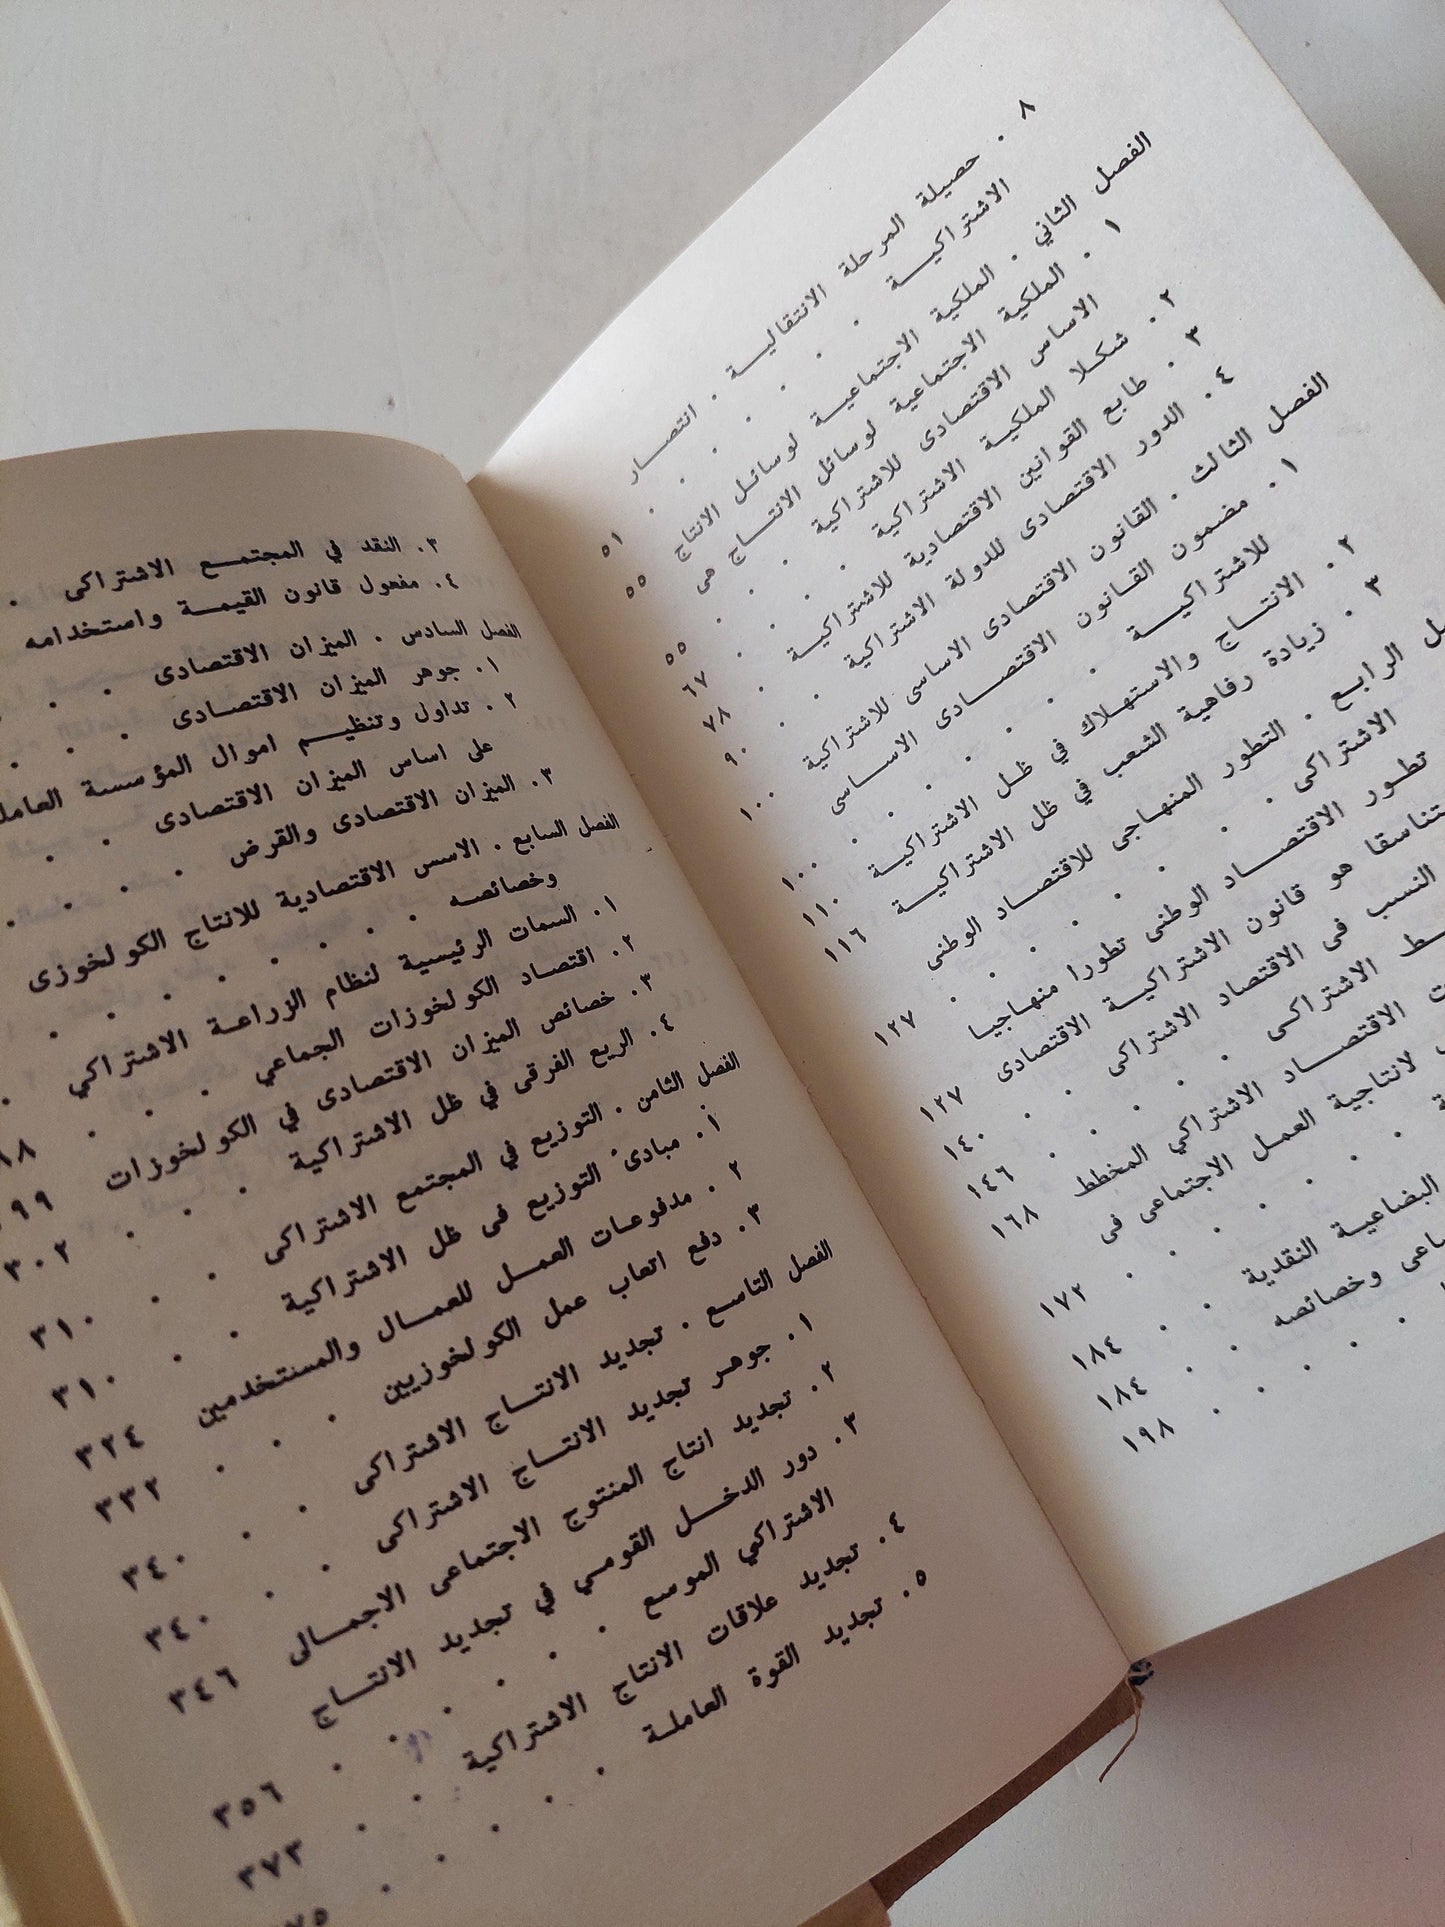 ٨ . حصيلة المرحلة الانتقاليـــة . انتصـــار
الاشتراكيـــة . . . . . . . ٥١
الفصل الثاني . الملكية الاجتماعيـــة لوسائـل الانتاج ٥٥
١ . الملكية الاجتماعية لوسائل الانتـــاج هى
الاساس الاقتصادى للاشتراكية . . . ٥٥
٢ . شكـلا الملكيـة الاشتراكية . . . ٦٧
٣ . طابع القوانين الاقتصادية للاشتراكيـة . ٧٨
٤ . الدور الاقتصادى للدولة الاشتراكية . . ٩٠
الفصل الثالث . القانون الاقتصادى الاساسى للاشتراكية ١٠٠
١ . مضمون القـانون الاقتصـــادى الاســـاسى
للاشتراكيـــة . . . . . . ١٠٠
٢ . الانتـاج والاستهـلاك في ظـل الاشتراكيـة ١١٠
٣ . زيادة رفاهية الشعب في ظل الاشتراكيـــة ١١٦
الرابـع . التطور المنهـاجى للاقتصـــاد الوطنى
الاشتراكى . . . . . . ١٢٧
تطـور الاقتصـــاد الوطنى تطورا منهـاجيـا
هو قانون الاشتراكيـــة الاقتصادى ١٢٧
النسب فى الاقتصاد الاشتراكى . . ١٤٠
الاشتراكـى . . . . ١٤٦
الاقتصـــاد الاشتراكي المخطط ١٦٨
لانتاجية العمـل الاجتماعى فى
. . . . ١٧٢
البضاعيـة النقدية . . ١٨٤
وخصائصه . . ١٨٤
. . . . ١٩٨
٣ . النقد في المجتمـــع الاشتراكى .
٤ . مفعول قانون القيمـــة واستخدامه
الفصل السادس . الميزان الاقتصادى . .
١ . جوهر الميزان الاقتصـــادى . . .
٢ . تداول وتنظيـــم اموال المؤسسة
على اساس الميزان الاقتصادى . .
٣ . الميزان الاقتصادى والقرض . . . .
الفصل السابع . الاسس الاقتصادية للانتاج الكولخوزى
وخصائصه . . . . . .
١ . السمات الرئيسية لنظام الزراعـة الاشتراكي .
٢ . اقتصـاد الكولخوزات الجماعي . . .
٣ . خصائص الميزان الاقتصادى في الكولخوزات
٤ . الريع الفرقى في ظل الاشتراكية . . . ٣٠٢
الفصل الثامن . التوزيع في المجتمع الاشتراكى . . . ٣١٠
١ . مبادئ التوزيع فى ظل الاشتراكية . . ٣١٠
٢ . مدفوعـات العمـــل للعمـــال والمستخدمين ٣٢٤
٣ . دفع اتعاب عمل الكولخوزيين . . . ٣٣٢
الفصل التاسـع . تجديد الانتـــاج الاشتراكى . . . ٣٤٠
١ . جوهـر تجديد الانتـــاج الاشتراكى . . ٣٤٠
٢ . تجديد انتاج المنتوج الاجتماعى الاجمـــالى ٣٤٦
٣ . دور الدخـــل القومـي في تجديد الانتـــاج
الاشتراكي الموسع . . . . . ٣٥٦
٤ . تجديد علاقات الانتاج الاشتراكية . . ٣٧٣
٥ . تجديد القوة العاملـة . . . .